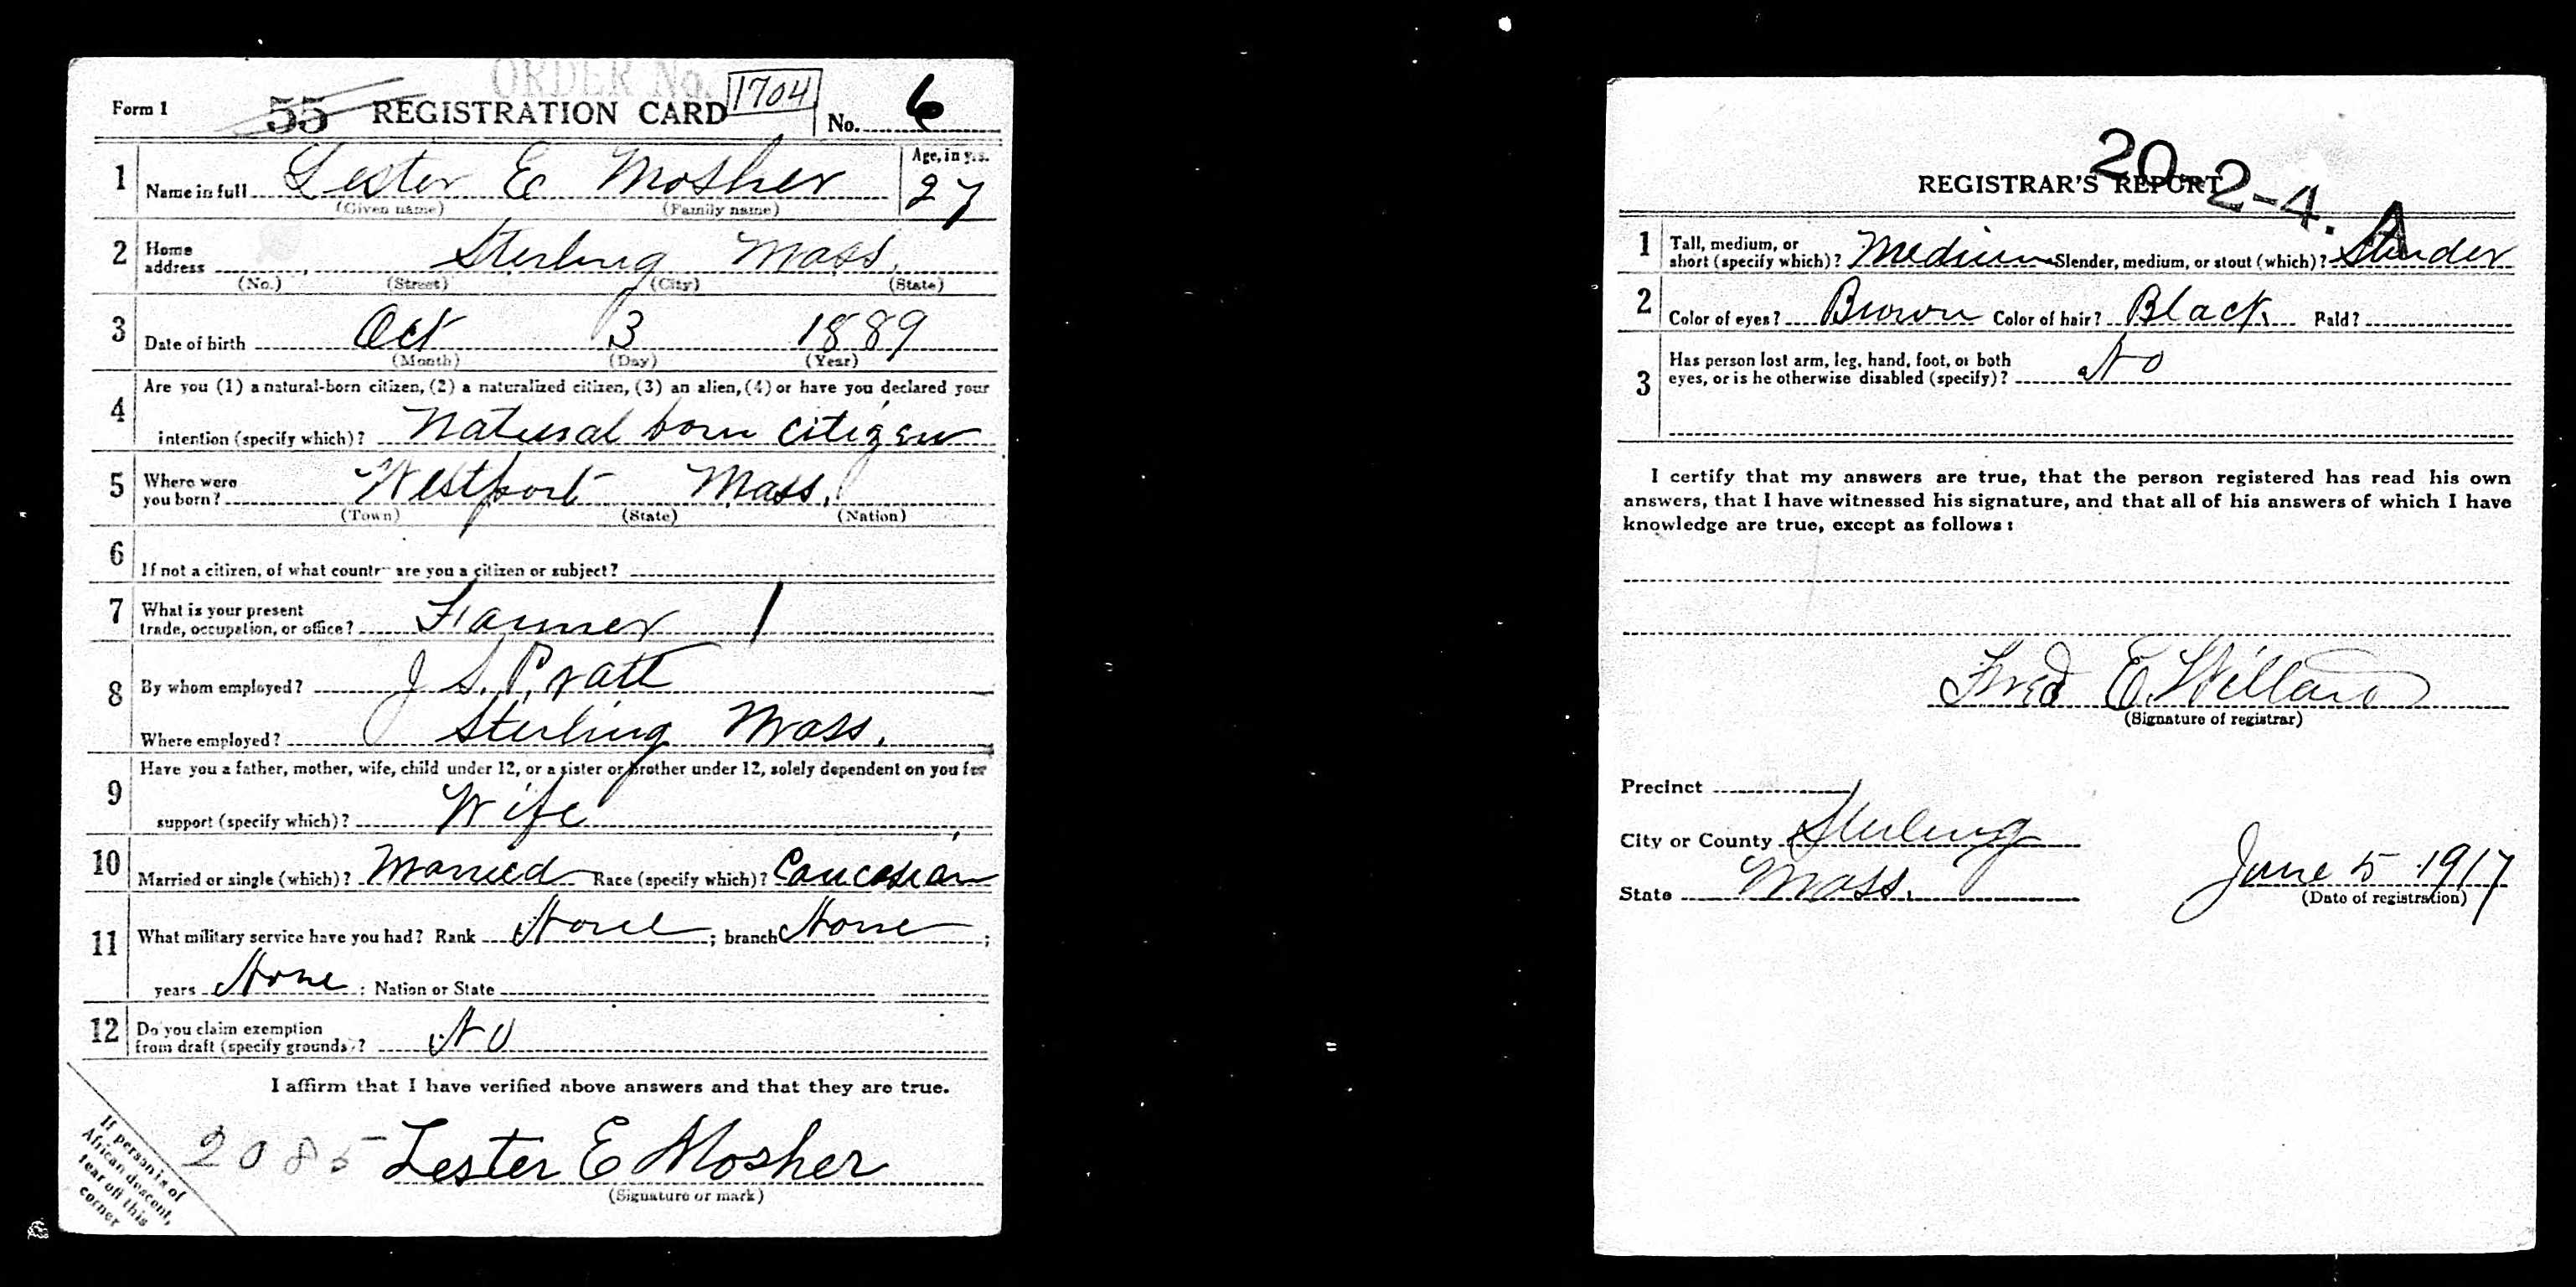 ORDER No. 1704
Form 1 55 REGISTRATION CARD No. 6
1 Name in full Lester E Mosher Age, in yrs. 27
(Given name) (Family name)
2 Home address Sterling Mass.
(No.) (Street) (City) (State)
3 Date of birth Oct 3 1889
(Month) (Day) (Year)
4 Are you (1) a natural-born citizen, (2) a naturalized citizen, (3) an alien, (4) or have you declared your
intention (specify which)? Natural born citizen
5 Where were you born? Westport Mass.
(Town) (State) (Nation)
6 If not a citizen, of what country are you a citizen or subject?
7 What is your present
trade, occupation, or office? Farmer
8 By whom employed? J S. Pratt
Where employed? Sterling Mass.
9 Have you a father, mother, wife, child under 12, or a sister or brother under 12, solely dependent on you for
support (specify which)? Wife
10 Married or single (which)? Married Race (specify which)? Caucasian
11 What military service have you had? Rank None ; branch None ;
years None ; Nation or State
12 Do you claim exemption
from draft (specify grounds)? No
I affirm that I have verified above answers and that they are true.
2085 Lester E Mosher
(Signature or mark)
If person is of
African descent,
tear off this
corner
20-2-4. A
REGISTRAR'S REPORT
1 Tall, medium, or
short (specify which)? Medium Slender, medium, or stout (which)? Slender
2 Color of eyes? Brown Color of hair? Black Bald?
3 Has person lost arm, leg, hand, foot, or both
eyes, or is he otherwise disabled (specify)? No
I certify that my answers are true, that the person registered has read his own
answers, that I have witnessed his signature, and that all of his answers of which I have
knowledge are true, except as follows:
Fred E. Willard
(Signature of registrar)
Precinct
City or County Sterling
State Mass. June 5 1917
(Date of registration)